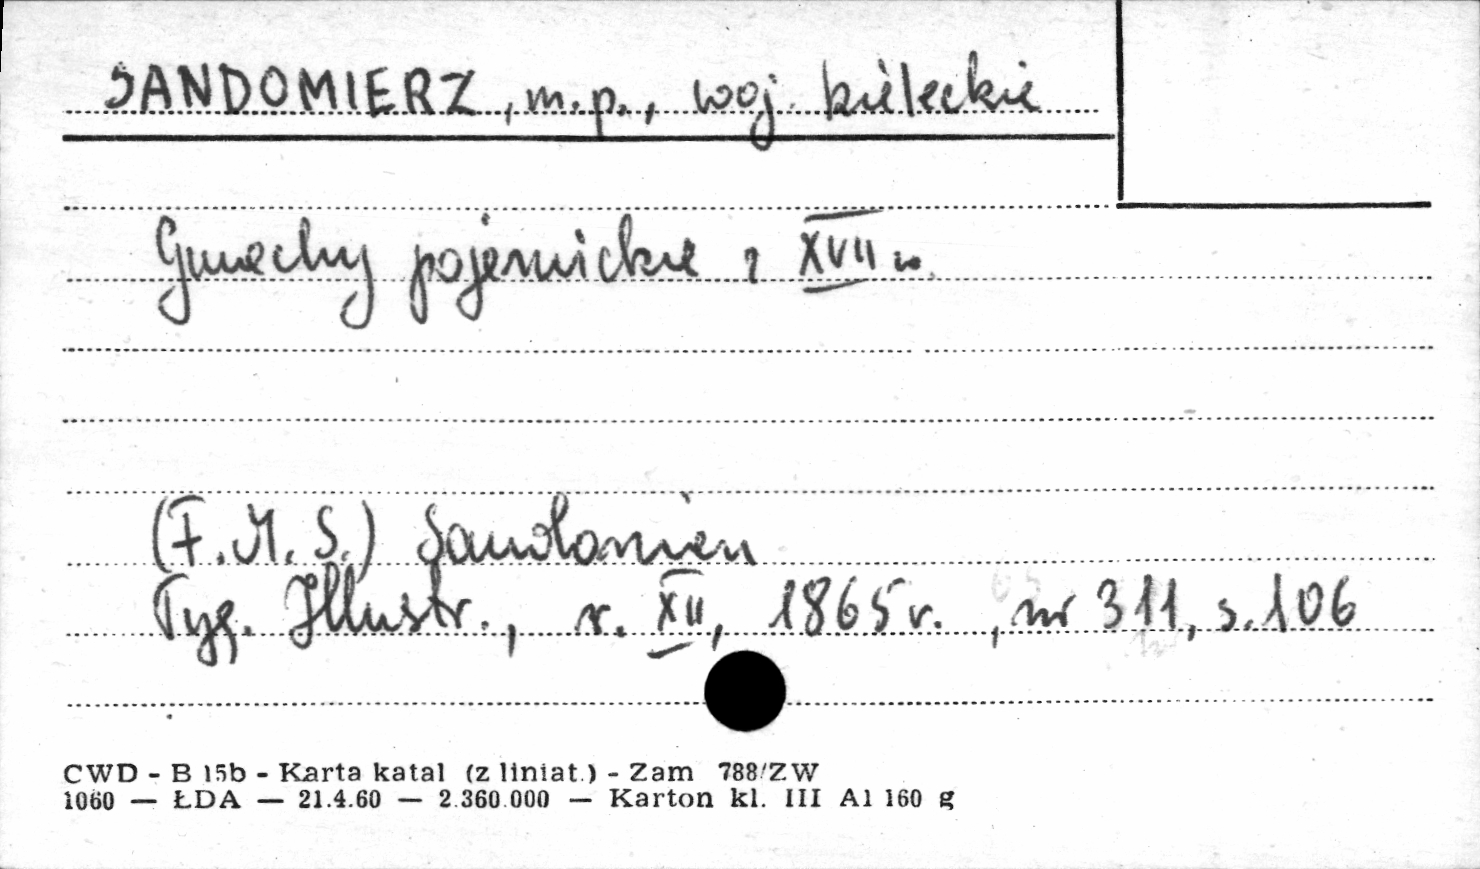 SANDOMIERZ, m.p., woj. kieleckie
Gmachy pojezuickie z XVII w.
(F.M.S.) Sandomierz
Tyg. Illustr., r. XII, 1865 r. , nr 311, s. 106
CWD - B 15b - Karta katal (z liniat.) - Zam 788/ZW
1060 — ŁDA — 21.4.60 — 2.360.000 — Karton kl. III A1 160 g